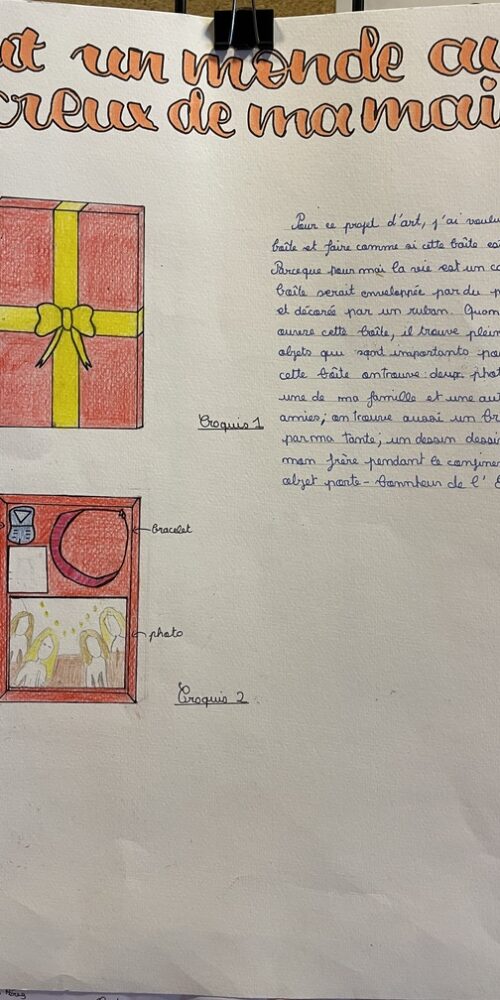 ut un monde au
creux de ma mai
Pour ce projet d'art, j'ai voulu
boîte et faire comme si cette boîte
Parceque pour moi la vie est un ca
boîte serait enveloppée par du p
et décorée par un ruban. Quan
ouvre cette boîte, il trouve plein
objets qui sont importants po
cette boîte on trouve : deux phot
une de ma famille et une aut
amies; on trouve aussi un br
par ma tante; un dessin dessi
mon frère pendant le confine
objet porte-bonheur de l'
Croquis 1
bracelet
photo
Croquis 2